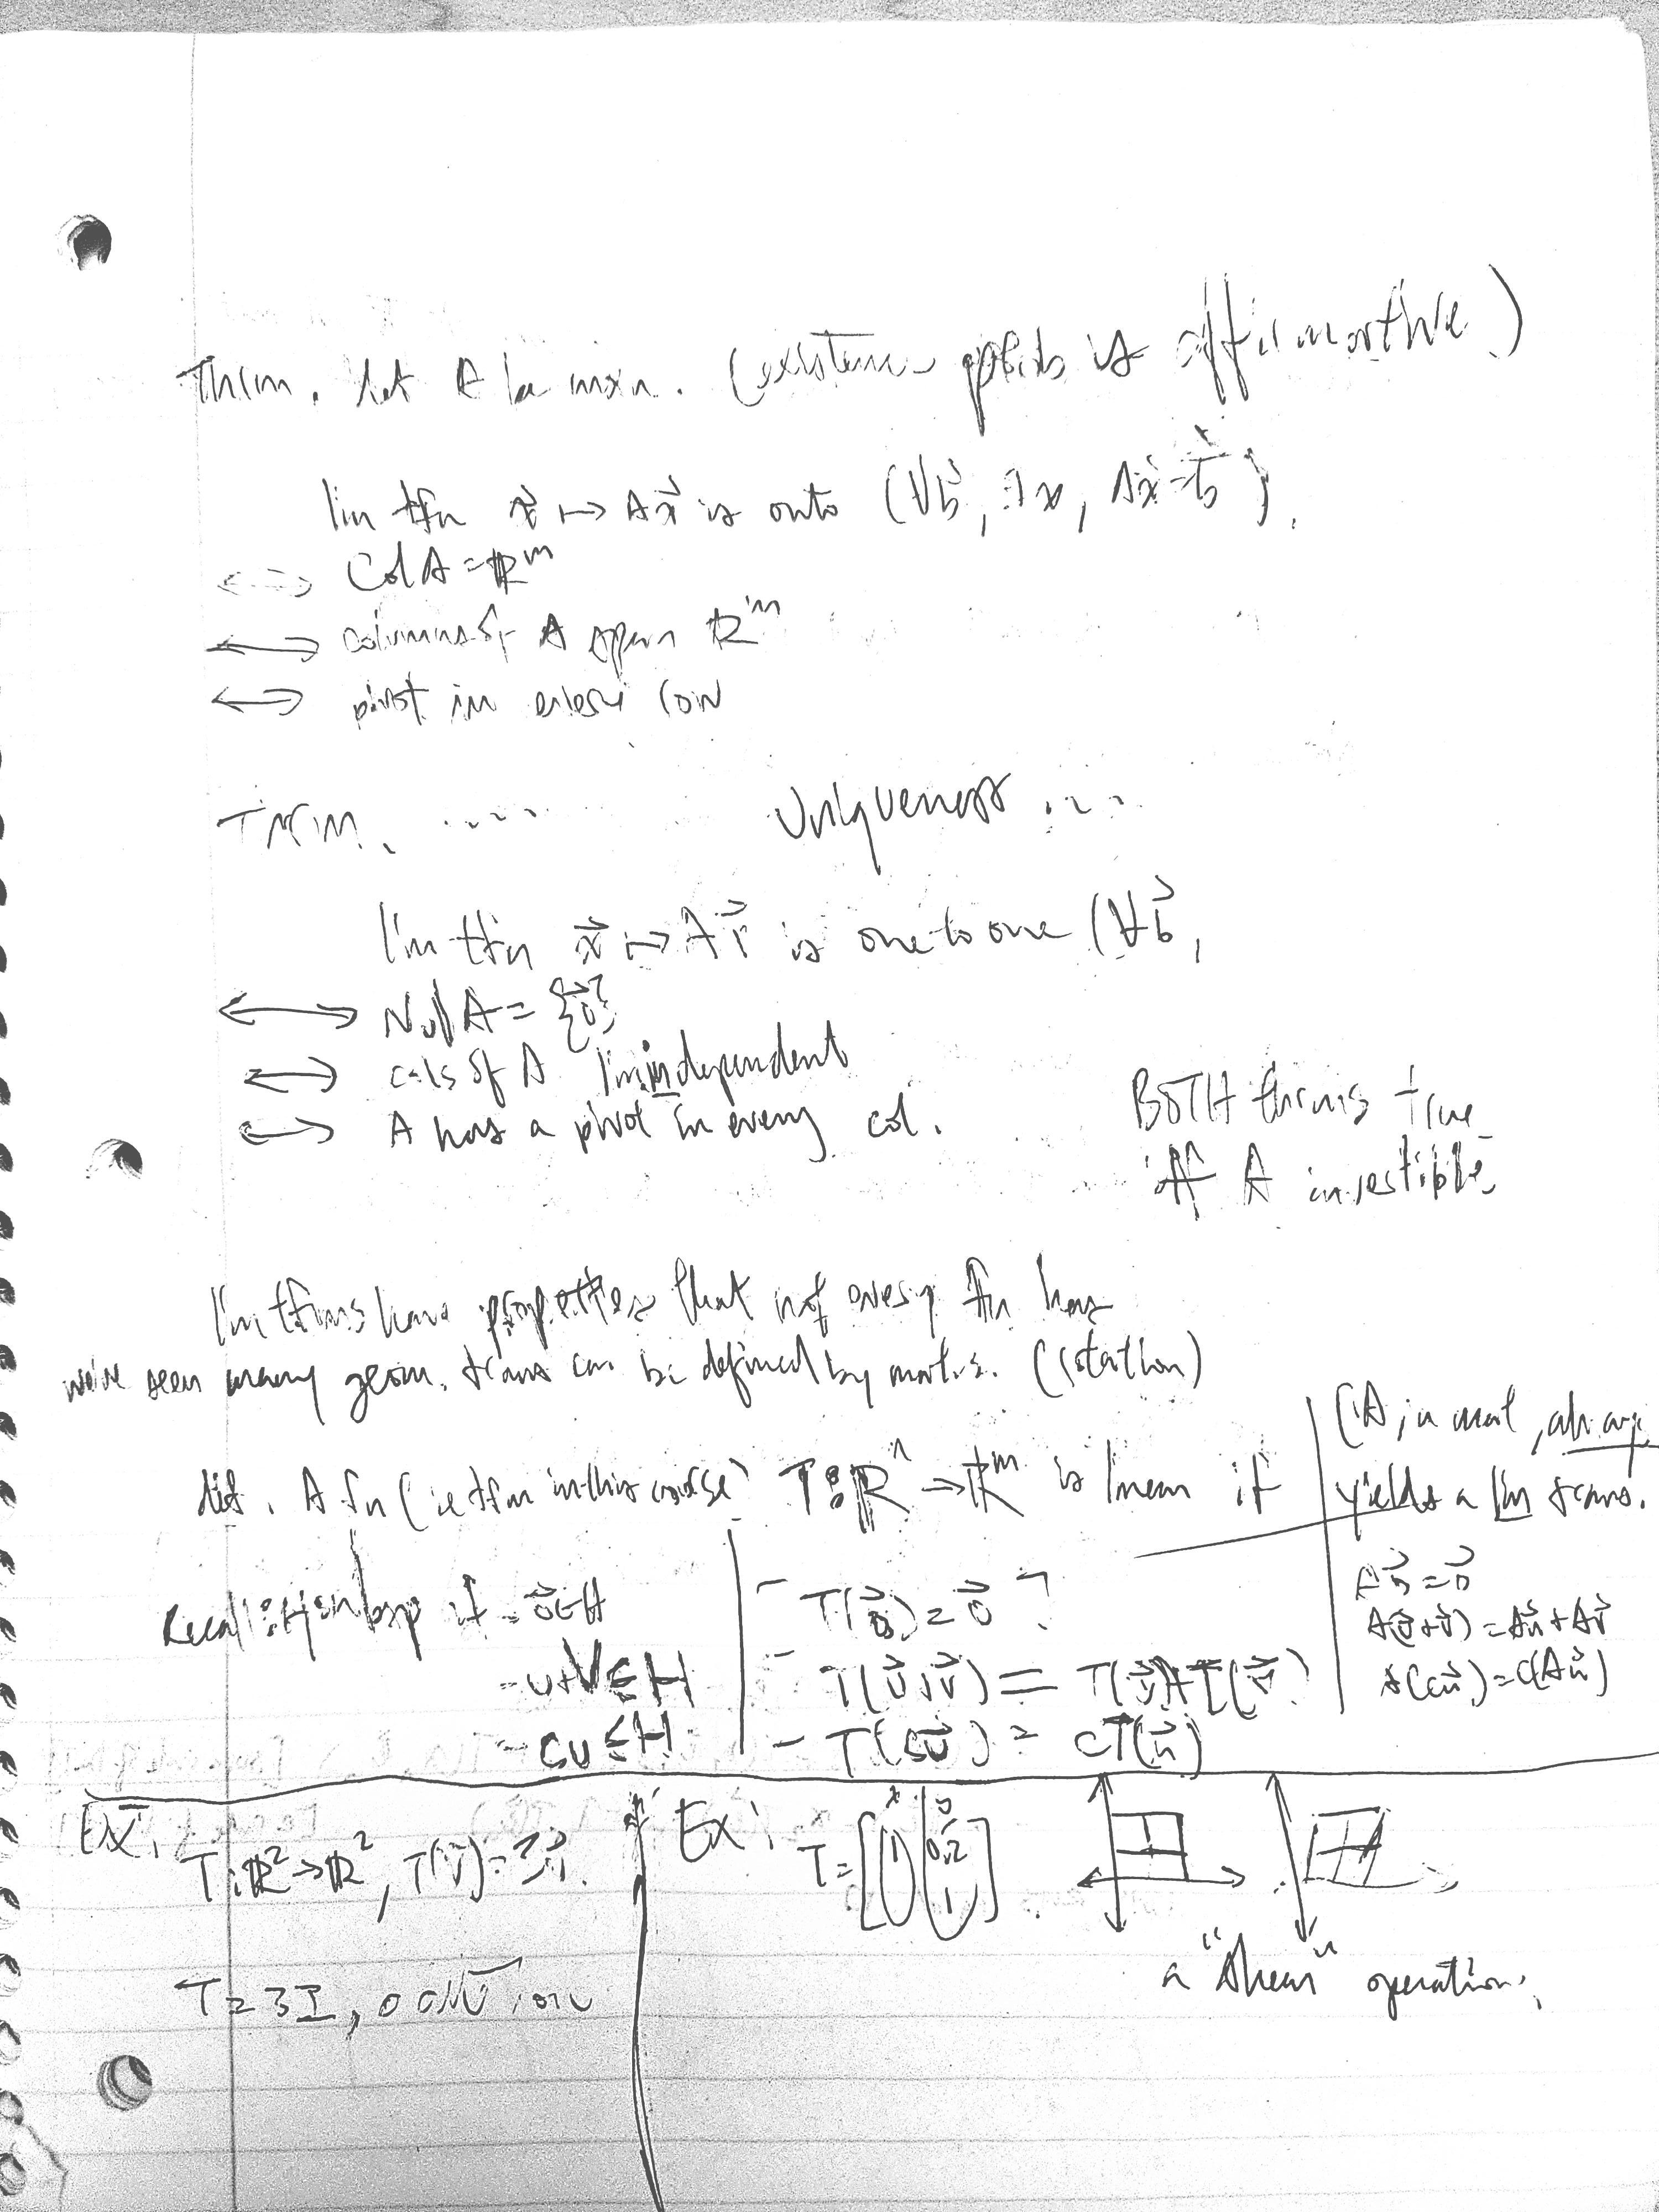 Thrm. Let A be mxn. (existence is affirmative)
lin tfn x⃗ ↦ Ax⃗ is onto (∀b⃗, ∃x, Ax⃗=b⃗).
⟷ Col A = ℝ^m
⟷ columns of A span ℝ^m
⟷ pivot in every row
Thrm. ..... Uniqueness ....
lin tfn x⃗ ↦ Ax⃗ is one to one (∀b⃗,
⟷ Nul A = {0⃗}
⟷ cols of A lin independent
⟷ A has a pivot in every col.
BOTH thrms true
iff A invertible.
lin tfns have properties that not every tfn has
we've seen many geom. trans can be defined by matrs. (rotation)
def. A fn (ie tfn in this course) T: ℝ^n → ℝ^m is linear if
(A, a mat, always
yields a lin trans.
Recall: H subsp if - 0⃗∈H
- u+v ∈ H
- cu ∈ H
- T(0⃗) = 0⃗
- T(u⃗+v⃗) = T(u⃗)+T(v⃗)
- T(cu⃗) = cT(u⃗)
A0⃗=0⃗
A(u⃗+v⃗) = Au⃗+Av⃗
A(cu⃗)=c(Au⃗)
Ex.
T: ℝ²→ℝ², T(v⃗)=3v⃗.
T=3I,
Ex:
x y
T= [1 0.2
1]
a "shear" operation.